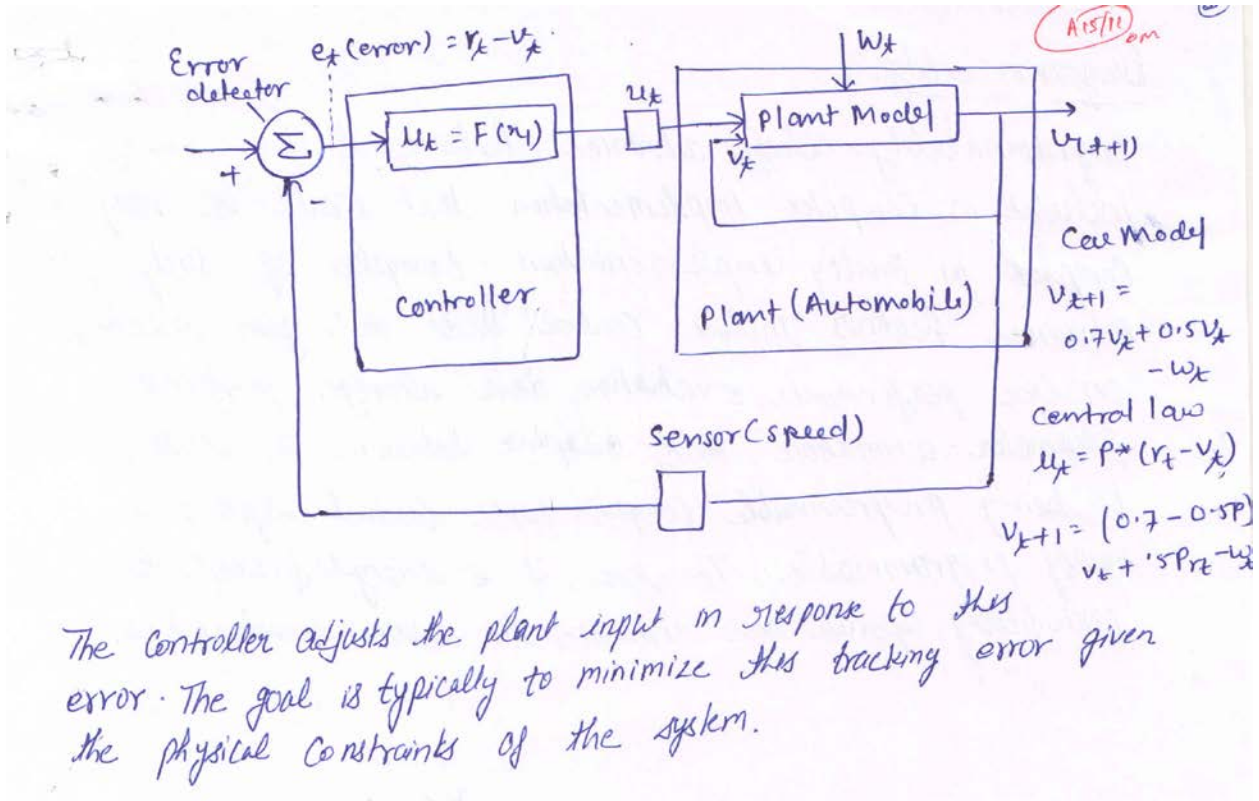 A15/11
om
Error
detector
e_t (error) = r_t - v_t.
Σ
+
-
u_t = F(r_t)
Controller
u_t
W_t
Plant Model
v_t
V(t+1)
Plant (Automobile)
Car Model
v_t+1 =
0.7v_t + 0.5v_t
- w_t
Central law
u_t = P * (r_t - v_t)
v_t+1 = (0.7 - 0.5P)
v_t + .5Pr_t - w_t
Sensor (speed)
The Controller adjusts the plant input in response to this
error. The goal is typically to minimize this tracking error given
the physical constraints of the system.